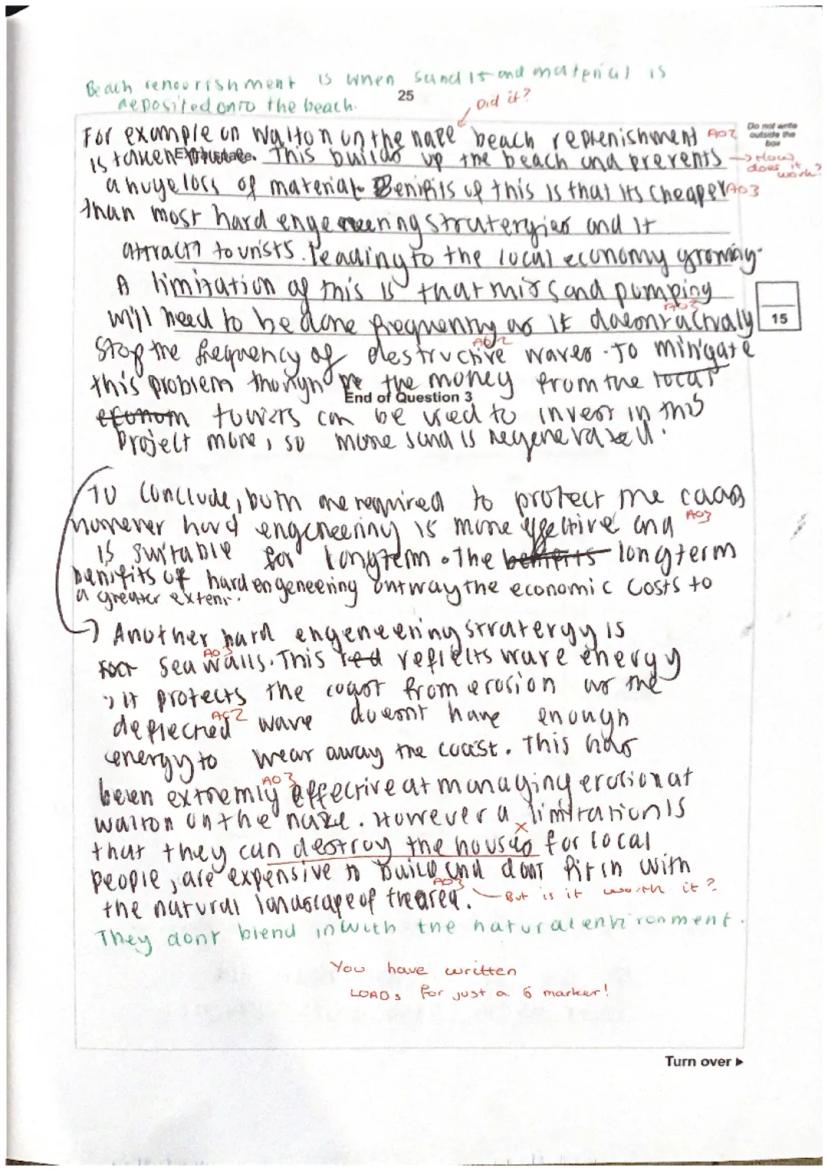 Beach renourishment is when sand and material is
deposited onto the beach.
25
Did it?
For example on Walton on the naze beach replenishment AO2
Do not write
outside the
box
is taken place. This builds up the beach and prevents → How
does it
work?
a huge loss of material. Benifits of this is that its cheaper AO3
than most hard engeneering stratergies and it
attracts tourists. leading to the local economy growing.
A limitation of this is that this sand pumping
AO3
will need to be done frequently as it doesnt actually
15
AO2
Stop the frequency of destructive waves. To mitigate
this problem though the money from the local
End of Question 3
econom towers can be used to invest in this
project more, so more sand is regenerated.
To conclude, both are required to protect the coast
however hard engeneering is more effective and AO3
is suitable for longterm. The benifits longterm
benifits of hard engeneering outway the economic costs to
a greater extent.
Another hard engeneering stratergy is
AO3
sea walls. This red reflects wave energy
, it protects the coast from erosion as the
AO2
deflected wave doesnt have enough
energy to wear away the coast. This has
AO3
been extremly effective at managing erosion at
walton on the naze. However a limitation is
x
that they can destroy the houses for local
people, are expensive to build and dont fit in with
AO3
the natural landscape of the area. But is it worth it?
They dont blend in with the natural environment.
You have written
LOADS for just a 6 marker!
Turn over ►